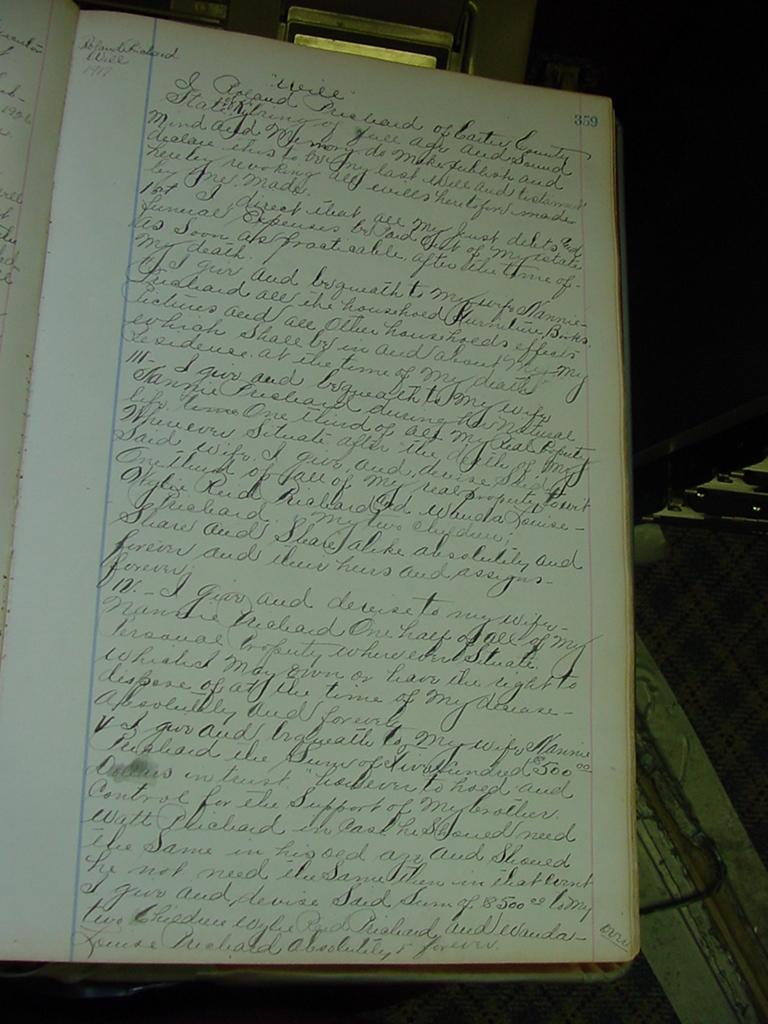 Roland Prichard
Will
1917
359
"Will"
I Roland Prichard of Carter County
State of Ky being of full age and Sound
Mind and Memory do make publish and
declare this to be my last will and testament
hereby revoking all wills heretofore made
by me. Made.
1st I direct that all my just debts and
funeral Expenses be paid out of my estate
as Soon as practicable after the time of
my death.
I give and bequeath to my wife Nannie
Prichard all the household furniture, Books,
Pictures and all other households effects
which Shall be in and about my
residence at the time of my death
III- I give and bequeath to my wife
Nannie Prichard during her natural
life time One third of all my real property
Wherever Situate after the death of my
Said wife. I give and devise said to wit
One third of all of my real property to
Wylie Reid Prichard and Wanda Louise-
Prichard. my two children,
Share and Share alike absolutely and
forever and their heirs and assigns-
forever;
IV.- I give and devise to my wife-
Nannie Prichard One half of all of my
Personal Property where ever Situate.
which I may own or have the right to
dispose of at the time of my decease-
Absolutely and forever
V I give and bequeath to my wife Nannie
Prichard the Sum of Five hundred $500 00
Dollars in trust however to hold and
Control for the Support of my brother
Watt Prichard in Case he Should need
the Same in his old age and Should
he not need the Same then in that Event
I give and devise Said Sum of $500 00 to my
two Children Wylie Reid Prichard and Wanda-
Louise Prichard absolutely & forever.
over